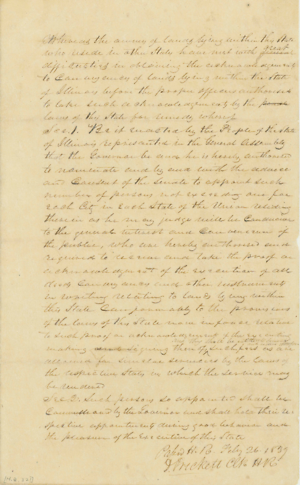 Whereas the owners of lands lying within this State
who reside in other States have met with great
difficulties in obtaining the acknowledgment
to Conveyances of lands lying within the State
of Illinois before the proper officers authorised
to take such acknowledgments by the
laws of this State for remedy whereof
Sec. 1. Be it enacted by the People of the State
of Illinois represented in the General Assembly
that the Governor be and he is hereby authorised
to nominate and by and with the advice
and Consent of the Senate to appoint such
number of persons not exceeding one for
each City in each State of the Union residing
therein as he may judge will be Conducive
to the general interest and Convenience of
the public, who are hereby authorised and
required to receive and take the proof or
acknowledgement of the execution of all
deed Conveyances and other instrument
in writing relating to lands lying within
this State Comformably to the provisions
of the laws of this State now in force relative
to such proof or acknowledgment
making
allowed for similar services by the laws of
the respective State in which the services may
be rendered
Sec 2. Such persons so appointed shall be
Commissioned by the Governor and shall hold their re-
spective appointment during good behavior and
the pleasure of the executive of this State
Feby 26 1839
Clk H.R.